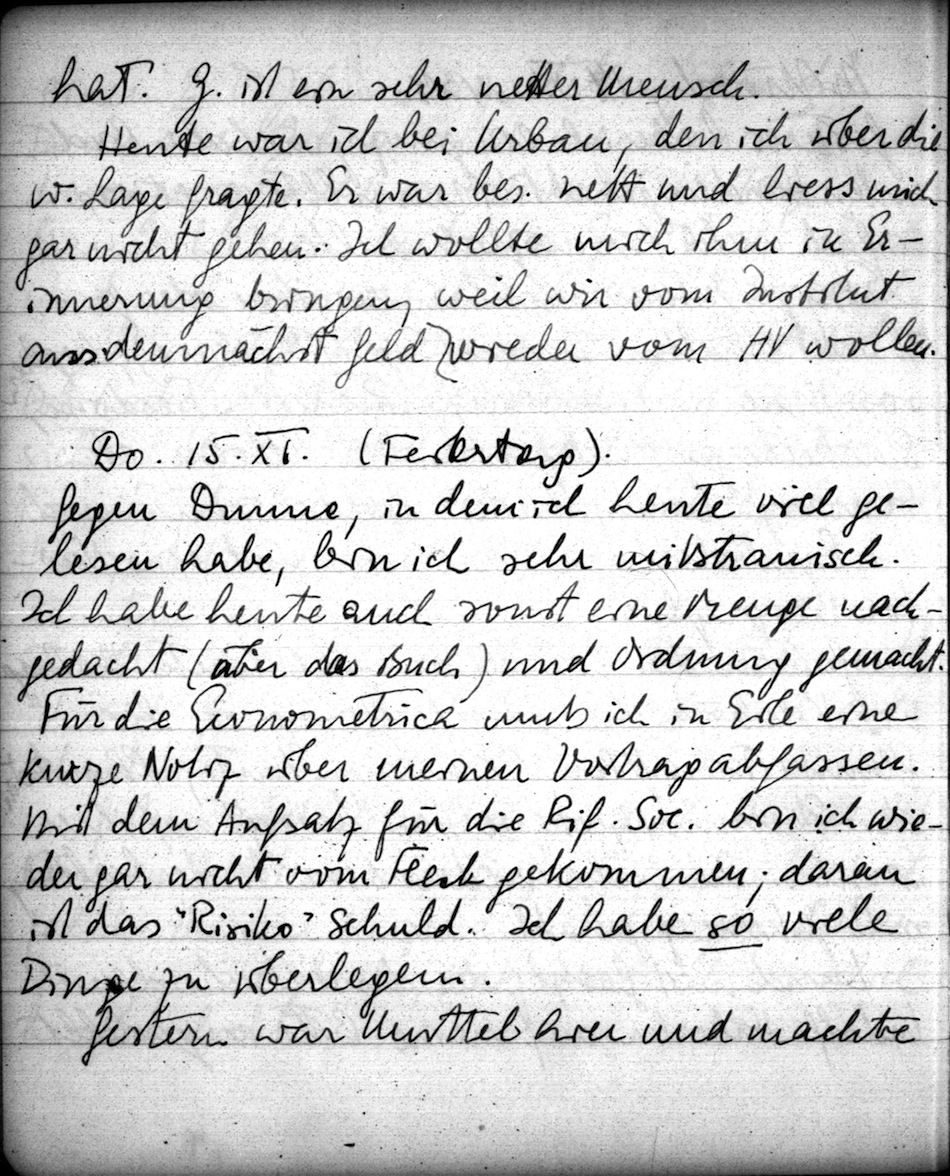 hat. G. ist ein sehr netter Mensch.
Heute war ich bei Urban, den ich über die
w. Lage fragte. Er war bes. nett und liess mich
gar nicht gehen. Ich wollte mich ihm in Er-
innerung bringen, weil wir vom Institut
aus demnächst Geld wieder vom HV wollen.
Do. 15. XI. (Feiertag).
Gegen Dunne, in dem ich heute viel ge-
lesen habe, bin ich sehr mißtrauisch.
Ich habe heute auch sonst eine Menge nach-
gedacht (über das Buch) und Ordnung gemacht.
Für die Econometrica muß ich in Eile eine
kurze Notiz über meinen Vortrag abfassen.
Mit dem Aufsatz für die Rif. Soc. bin ich wie-
der gar nicht vom Fleck gekommen; daran
ist das "Risiko" Schuld. Ich habe so viele
Dinge zu überlegen.
Gestern war hier und machte